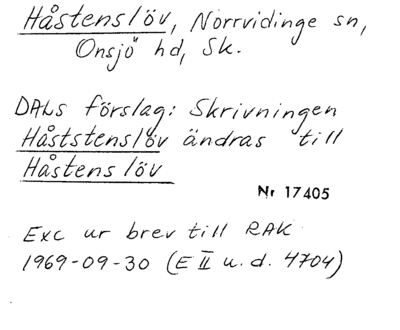 Håstenslöv, Norrvidinge sn,
Onsjö hd, Sk.
DALs förslag: Skrivningen
Håststenslöv ändras till
Håstens löv
Nr 17405
Exc ur brev till RAK
1969-09-30 (E II u. d. 4704)